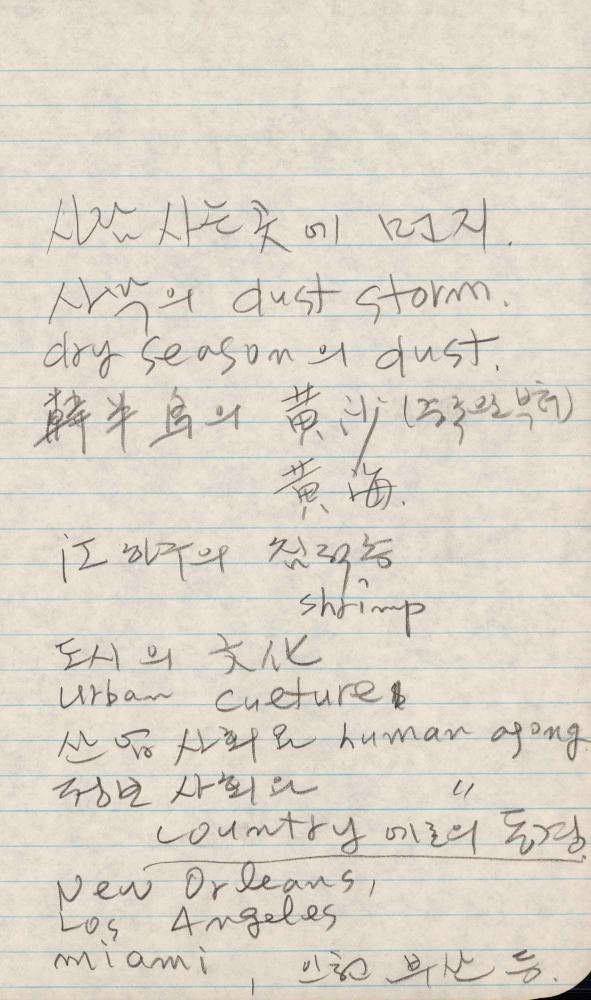 사람 사는 곳에 먼지.
사막의 dust storm.
dry season의 dust.
韓半島의 黃沙 (중국으로부터)
黃海.
江 하구의
shrimp
도시의 文化
Urban Culture
산업 사회와 human
주변 사회와 "
country에로의 동경
New Orleans,
Los Angeles
miami, 인천 부산 등.